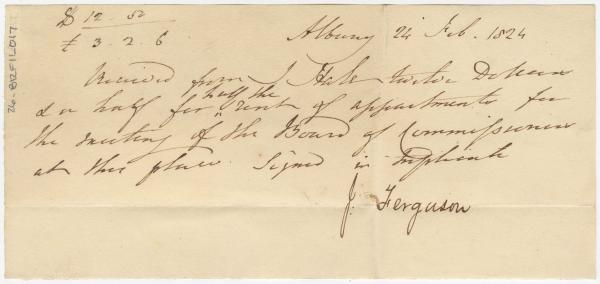 $ 12.50
£ 3.2.6
Albany 24 Feb. 1824
Received from J Hale twelve Dollars
& a half for half the rent of appartments for
the meeting of the Board of Commissioners
at this place. Signed in Duplicate
J. Ferguson